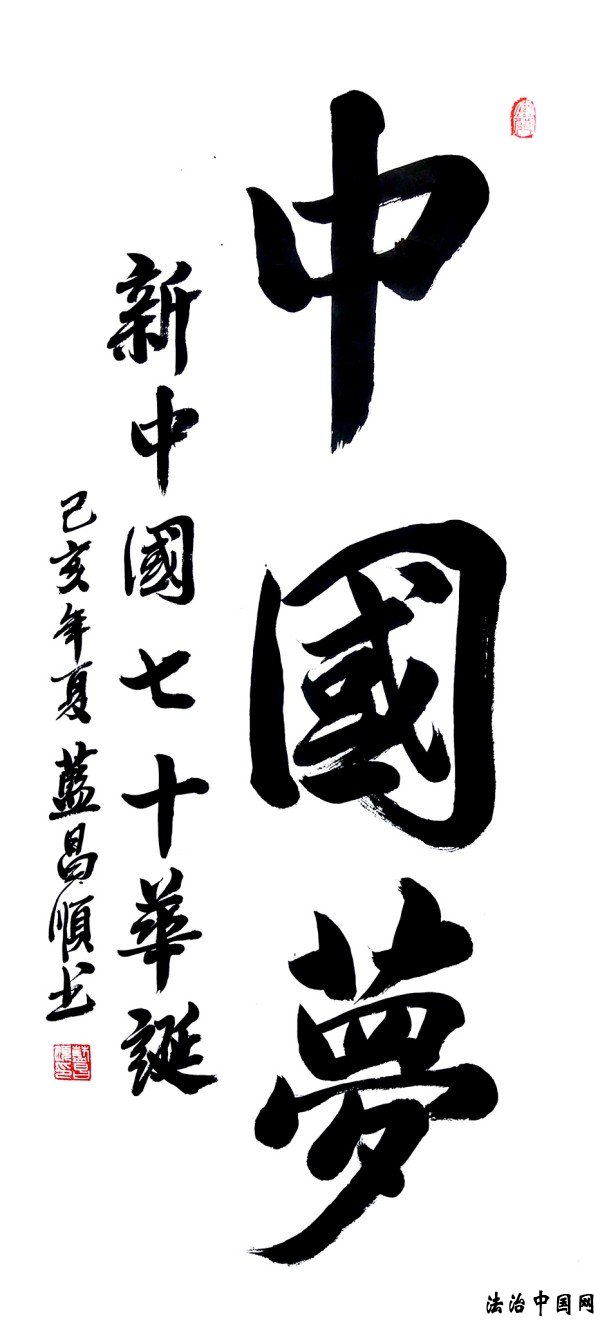 中國夢
新中國七十華誕
己亥年夏 藍昌順书
法治中国网